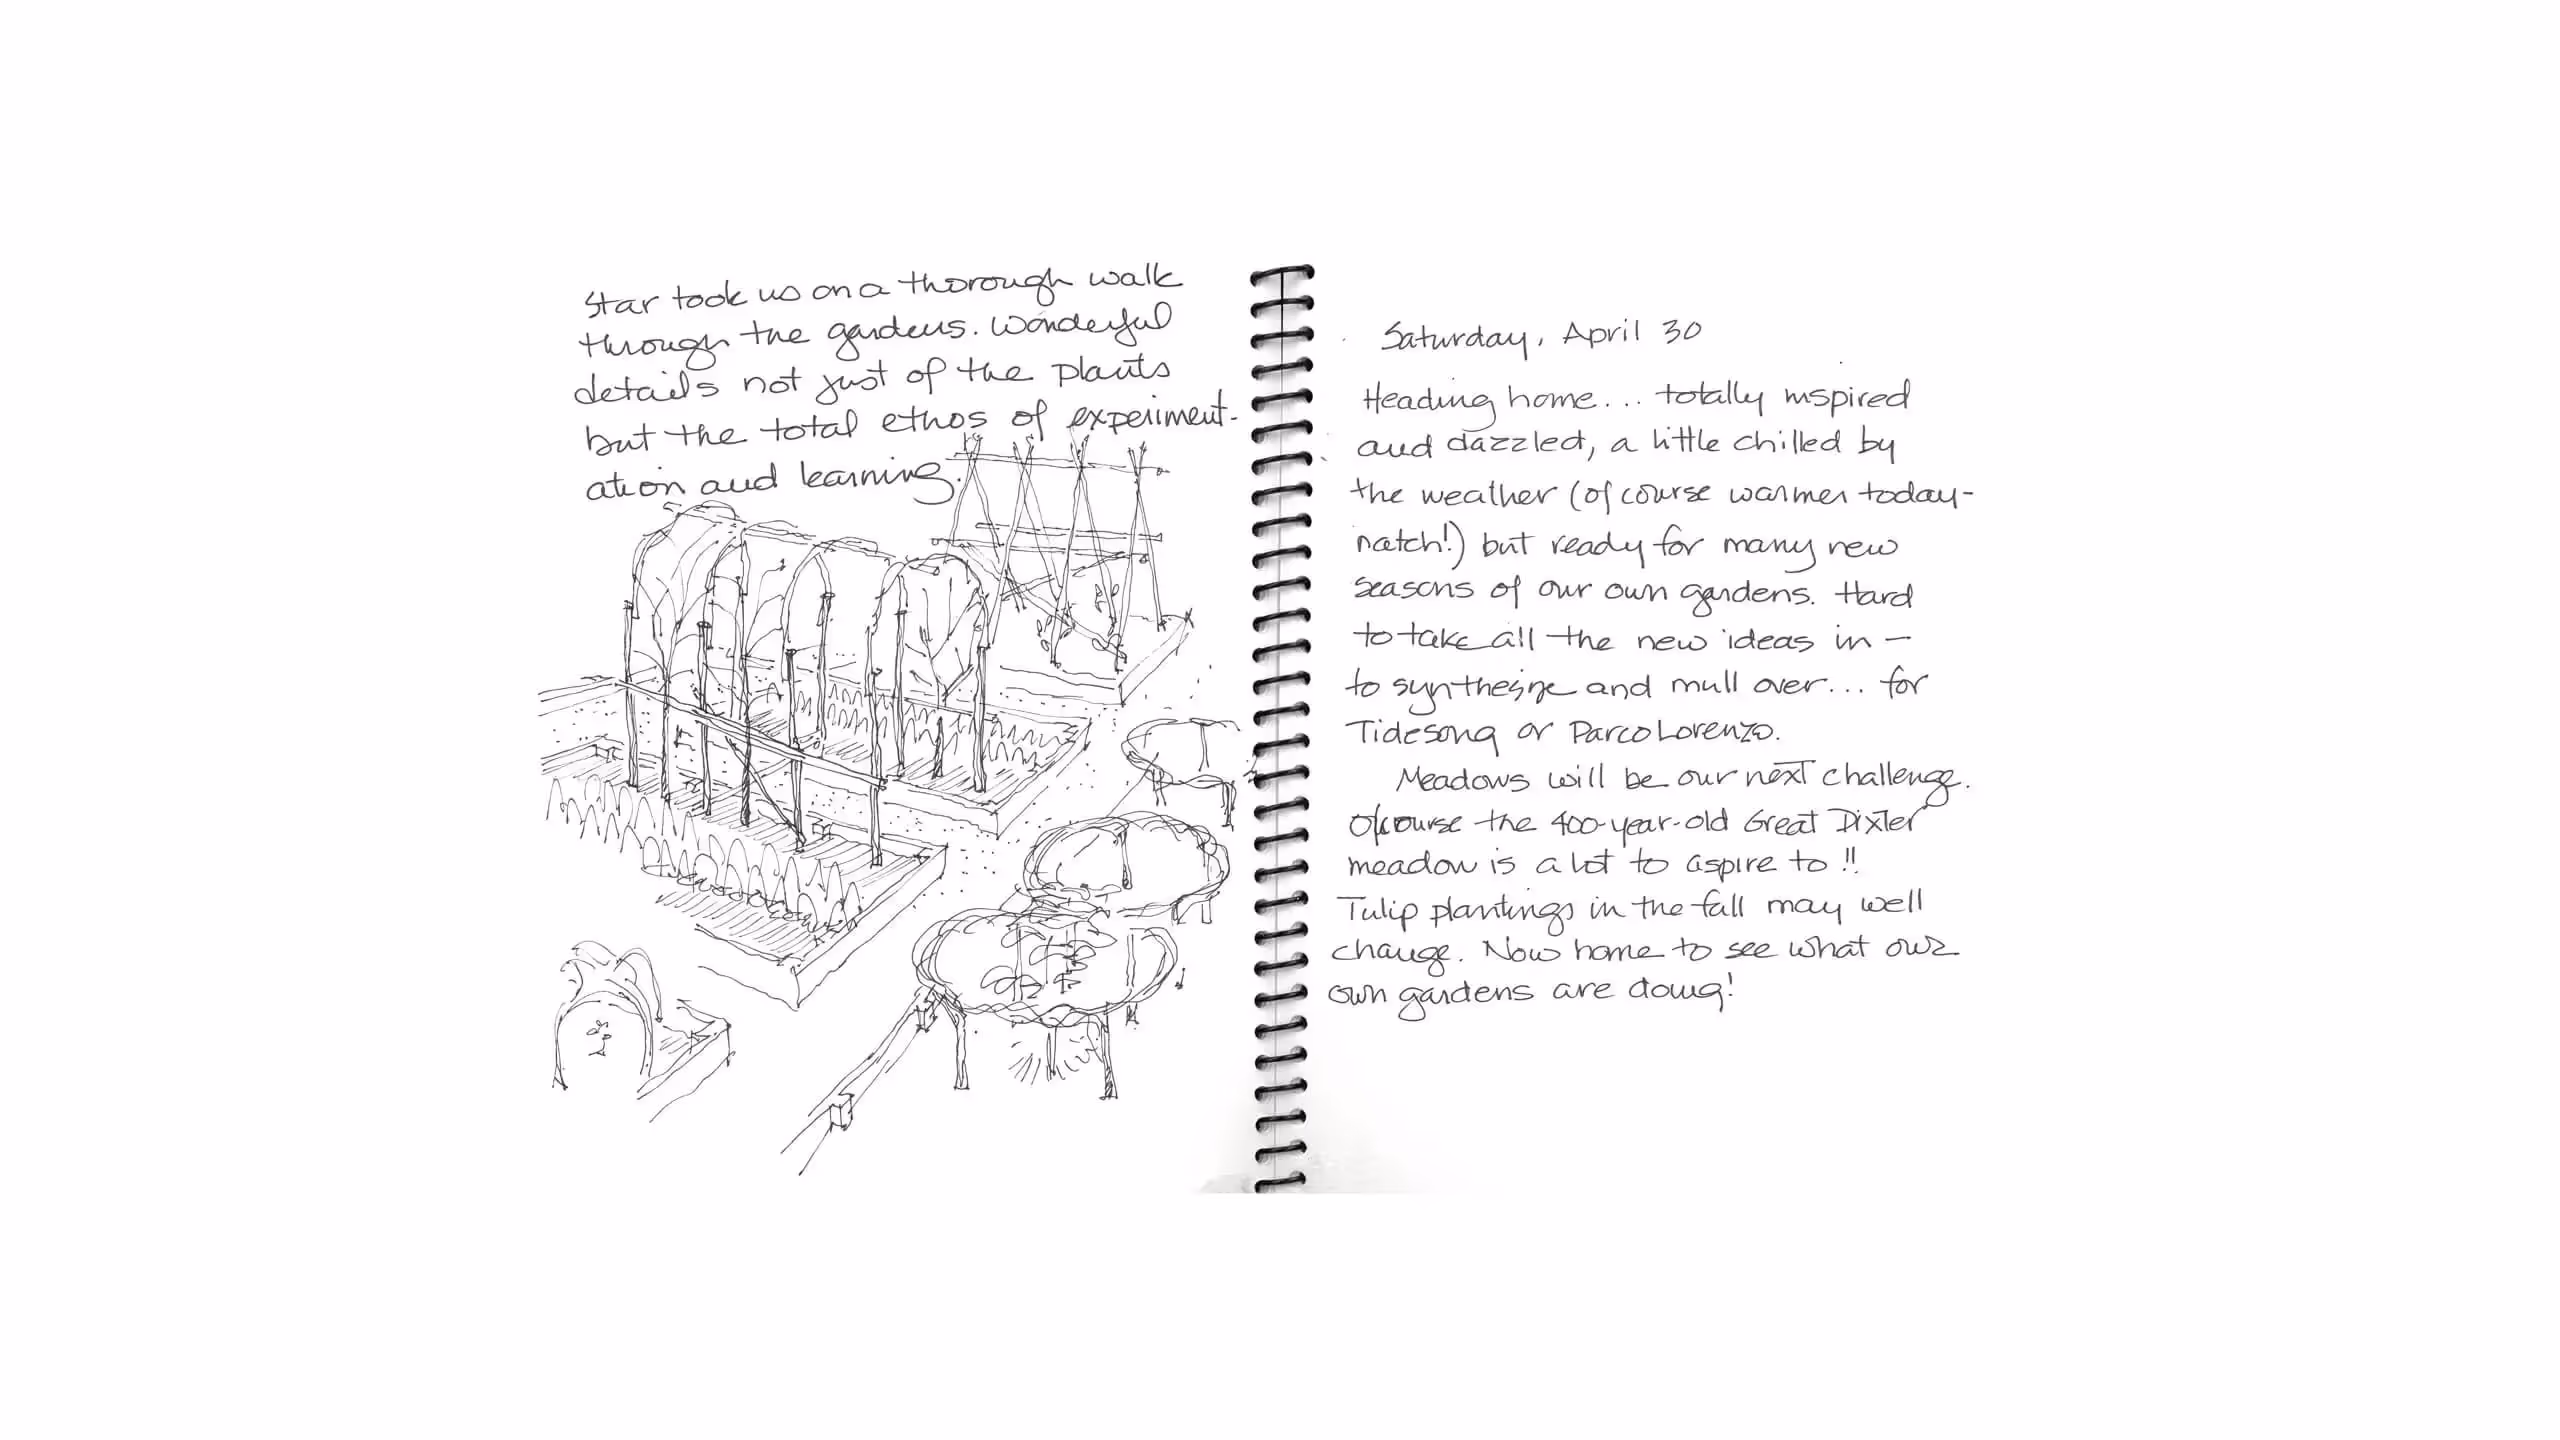 Star took us on a thorough walk
through the gardens. Wonderful
details not just of the plants
but the total ethos of experiment-
ation and learning.
Saturday, April 30
Heading home... totally inspired
and dazzled, a little chilled by
the weather (of course warmer today-
natch!) but ready for many new
seasons of our own gardens. Hard
to take all the new ideas in —
to synthesize and mull over... for
Tidesong or Parco Lorenzo.
Meadows will be our next challenge.
Of course the 400-year-old Great Dixter
meadow is a lot to aspire to!!
Tulip plantings in the fall may well
change. Now home to see what our
own gardens are doing!